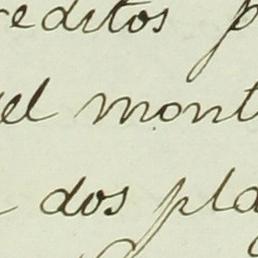 reditos p
el mont
a dos pla